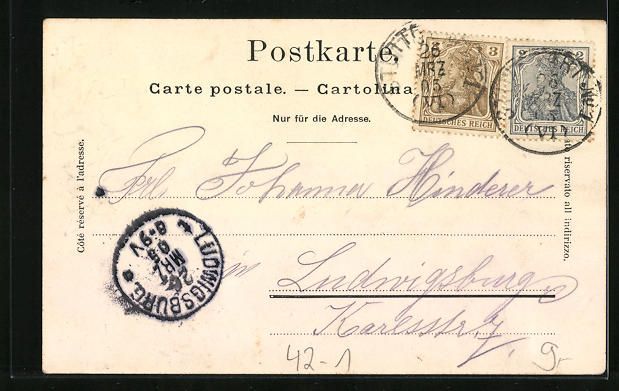 Postkarte.
Carte postale. — Cartolina
Nur für die Adresse.
Côté réservé à l'adresse.
riservato all indirizzo.
3
DEUTSCHES REICH
2
DEUTSCHES REICH
26
MRZ
05
Frl. Johanna Hinderer
in Ludwigsburg
Karlsstr. 7
LUDWIGSBURG
26
MRZ
05
8-9V
42-1
9,-